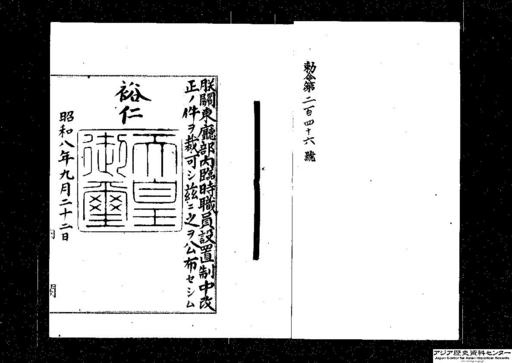 勅令第二百四十六號
朕關東廳部內臨時職員設置制中改
正ノ件ヲ裁可シ茲ニ之ヲ公布セシム
裕仁
天皇御璽
昭和八年九月二十二日
内閣
アジア歴史資料センター
Japan Center for Asian Historical Records